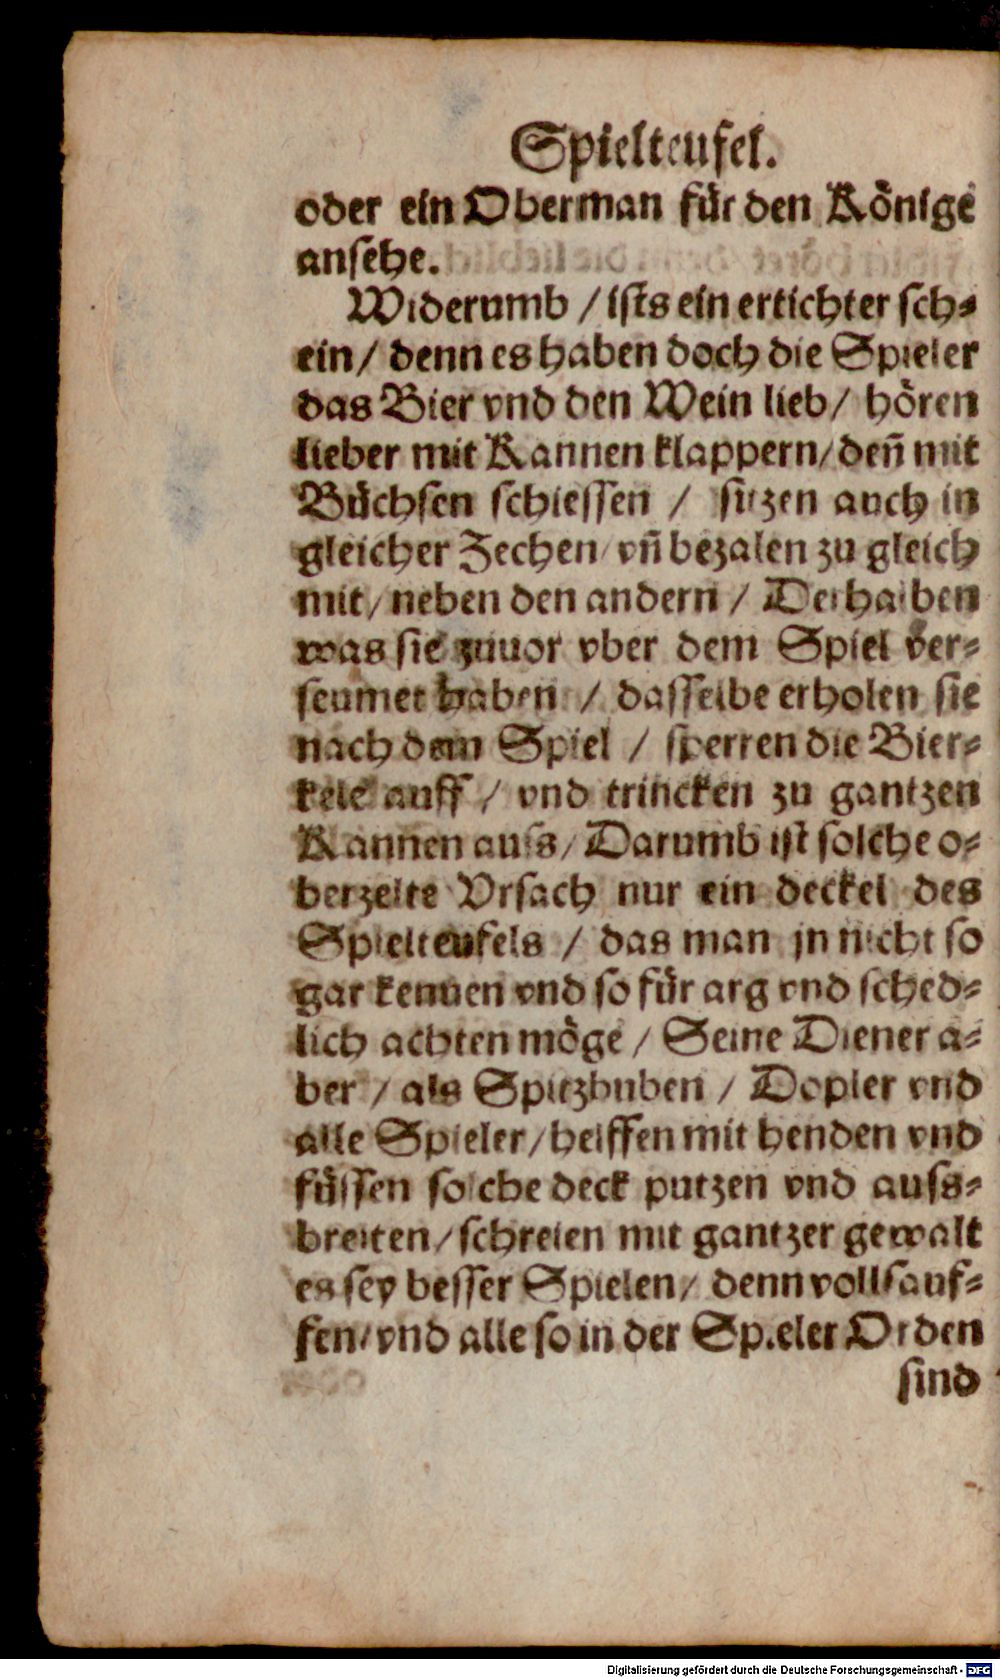 Spielteufel.
oder ein Oberman für den Könige
ansehe.
Widerumb / ists ein ertichter sch⸗
ein / denn es haben doch die Spieler
das Bier vnd den Wein lieb / hören
lieber mit Kannen klappern / deñ mit
Büchsen schiessen / sitzen auch in
gleicher Zechen / vñ bezalen zu gleich
mit / neben den andern / Derhalben
was sie zuuor vber dem Spiel ver⸗
seumet haben / dasselbe erholen sie
nach dem Spiel / sperren die Bier⸗
kele auff / vnd trincken zu gantzen
Kannen auss / Darumb ist solche o⸗
berzelte Vrsach nur ein deckel des
Spielteufels / das man jn nicht so
gar kennen vnd so für arg vnd sched⸗
lich achten möge / Seine Diener a⸗
ber / als Spitzbuben / Dopler vnd
alle Spieler / helffen mit henden vnd
füssen solche deck putzen vnd auss⸗
breiten / schreien mit gantzer gewalt
es sey besser Spielen / denn vollsauf⸗
fen / vnd alle so in der Spieler Orden
sind
Digitalisierung gefördert durch die Deutsche Forschungsgemeinschaft - DFG